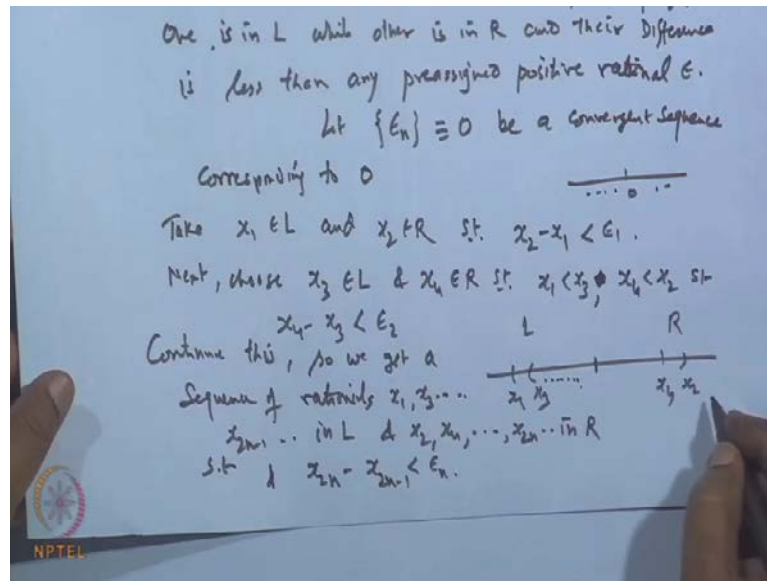 One is in L while other is in R and their Difference
is less than any preassigned positive rational ε.
Let {εn} ≡ 0 be a convergent sequence
corresponding to 0
0
Take x₁ ∈ L and x₂ ∈ R s.t. x₂ - x₁ < ε₁.
Next, choose x₃ ∈ L & x₄ ∈ R s.t. x₁ < x₃, x₄ < x₂ s.t
x₄ - x₃ < ε₂
L R
Continue this, so we get a
Sequence of rationals x₁, x₃ ....
x₁ x₃ ...... x₄ x₂
x₂ₙ₋₁ .. in L & x₂, x₄, ..., x₂ₙ .. in R
s.t x₂ₙ - x₂ₙ₋₁ < εₙ.
NPTEL